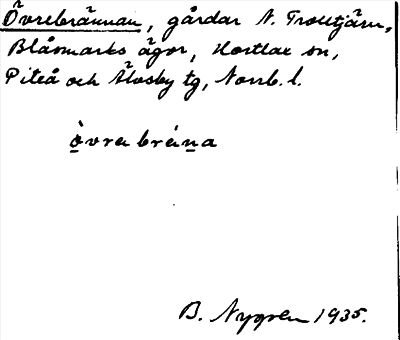 Övrebrännan, gårdar N. Trolltjärn,
Blåsmarks ägor, Hortlax sn,
Piteå och Älvsby tg, Norrb. l.
òvrebrána
B. Nygren 1935.